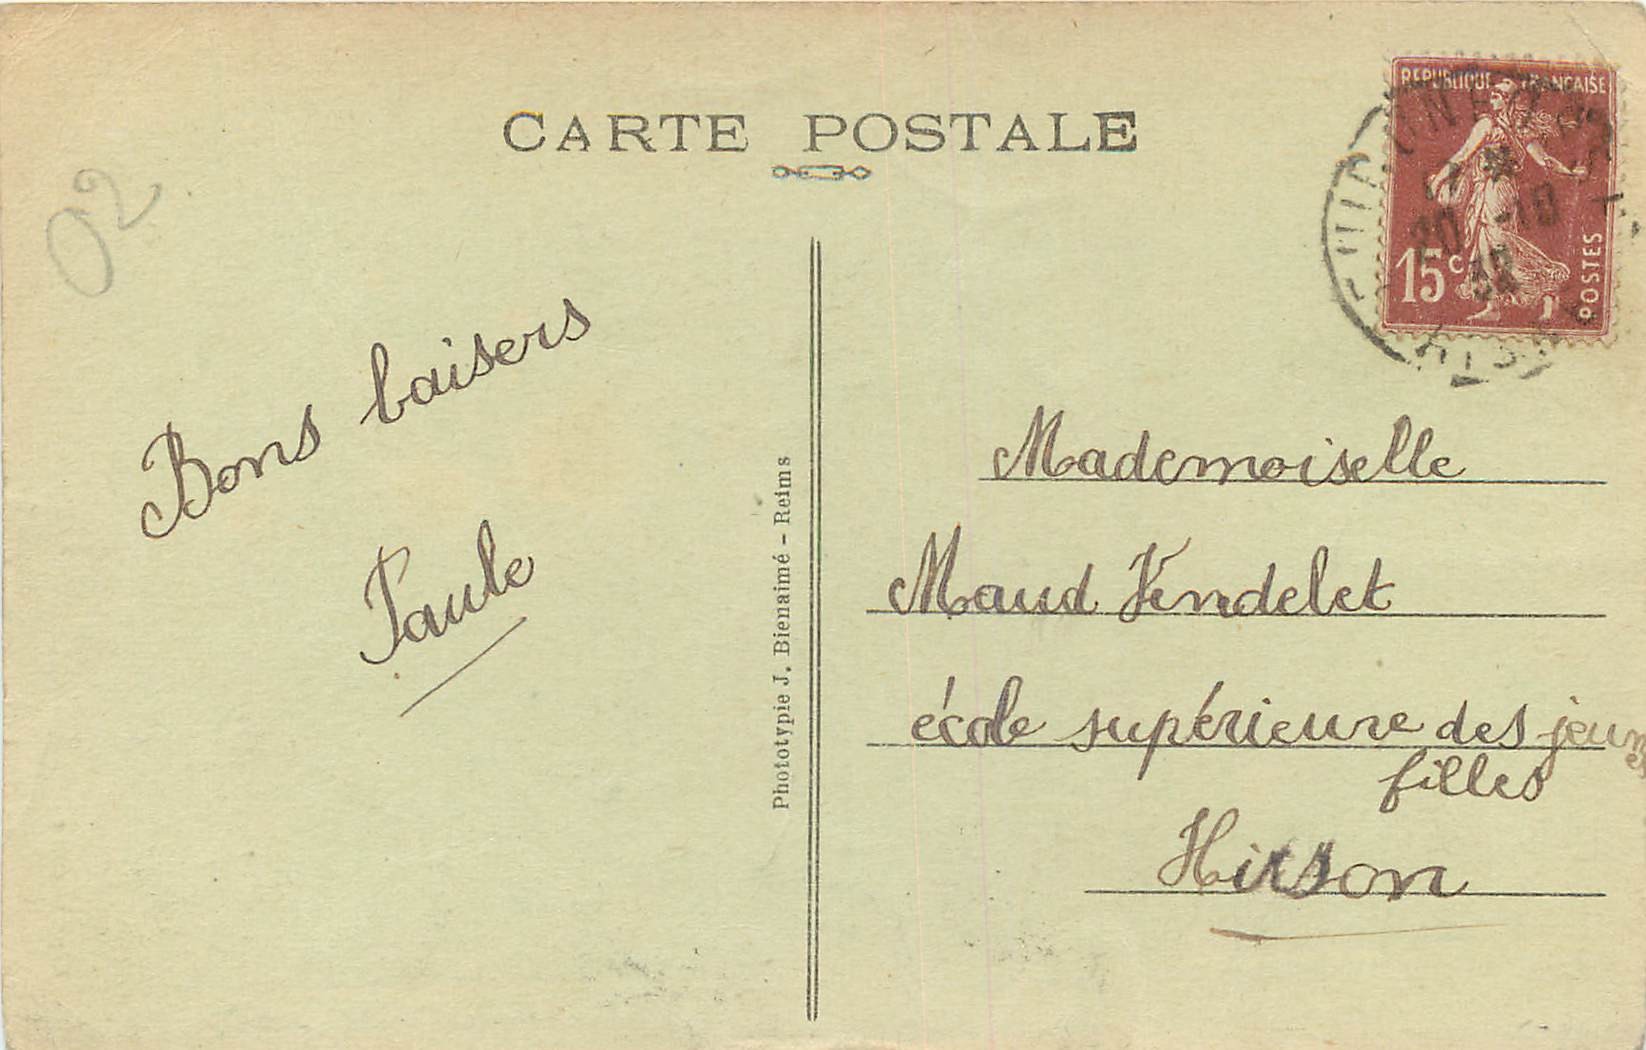 CARTE POSTALE
02
Bons baisers
Paule
Phototypie J. Bienaimé - Reims
REPUBLIQUE FRANÇAISE
15c
POSTES
Mademoiselle
Maud Vendelet
école supérieure des jeunes
filles
Hirson